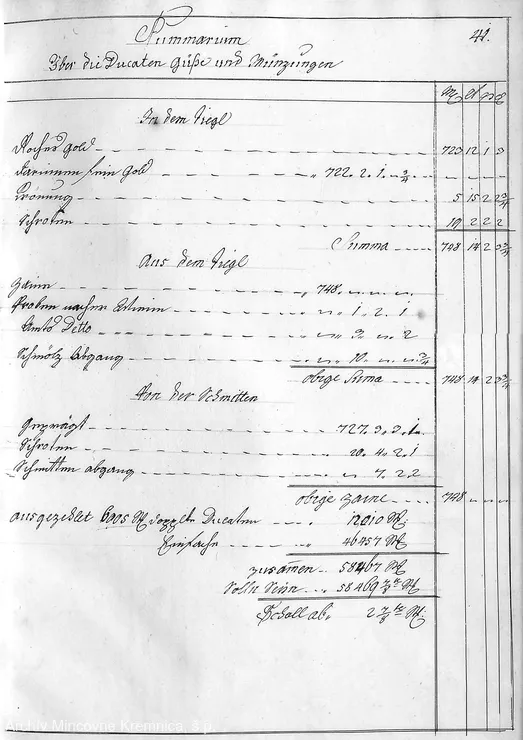 41.
Summarium
Über die Ducaten Güße und Münzungen
M L q d
In dem Tiegl
Roches Gold 723 12 1 3
darinnen fein Gold " 722. 2. 1.
5 15 2
Schroten 19 2 2 2
Summa 748 14 2
Aus dem Tiegl
Zaine " 748.
Proben 1. 2. 1
Amts Detto 3. 2
Schmölz Abgang 10.
obige Suma 748 14 2
Von der Schmitten
Geprägt 727. 3. 3. 1.
Schroten 20. 4. 2. 1
Schmitten abgang 7. 2 2
obige Zaine 748
ausgezehlet 6005 St doppelte Ducaten 12010 St.
Einfache " 46457 St
zusamen 58467 St
Solle Seyn 58469 7/8 St.
Schall ab. 2 7/8 St.
Archív Mincovne Kremnica, š.p.